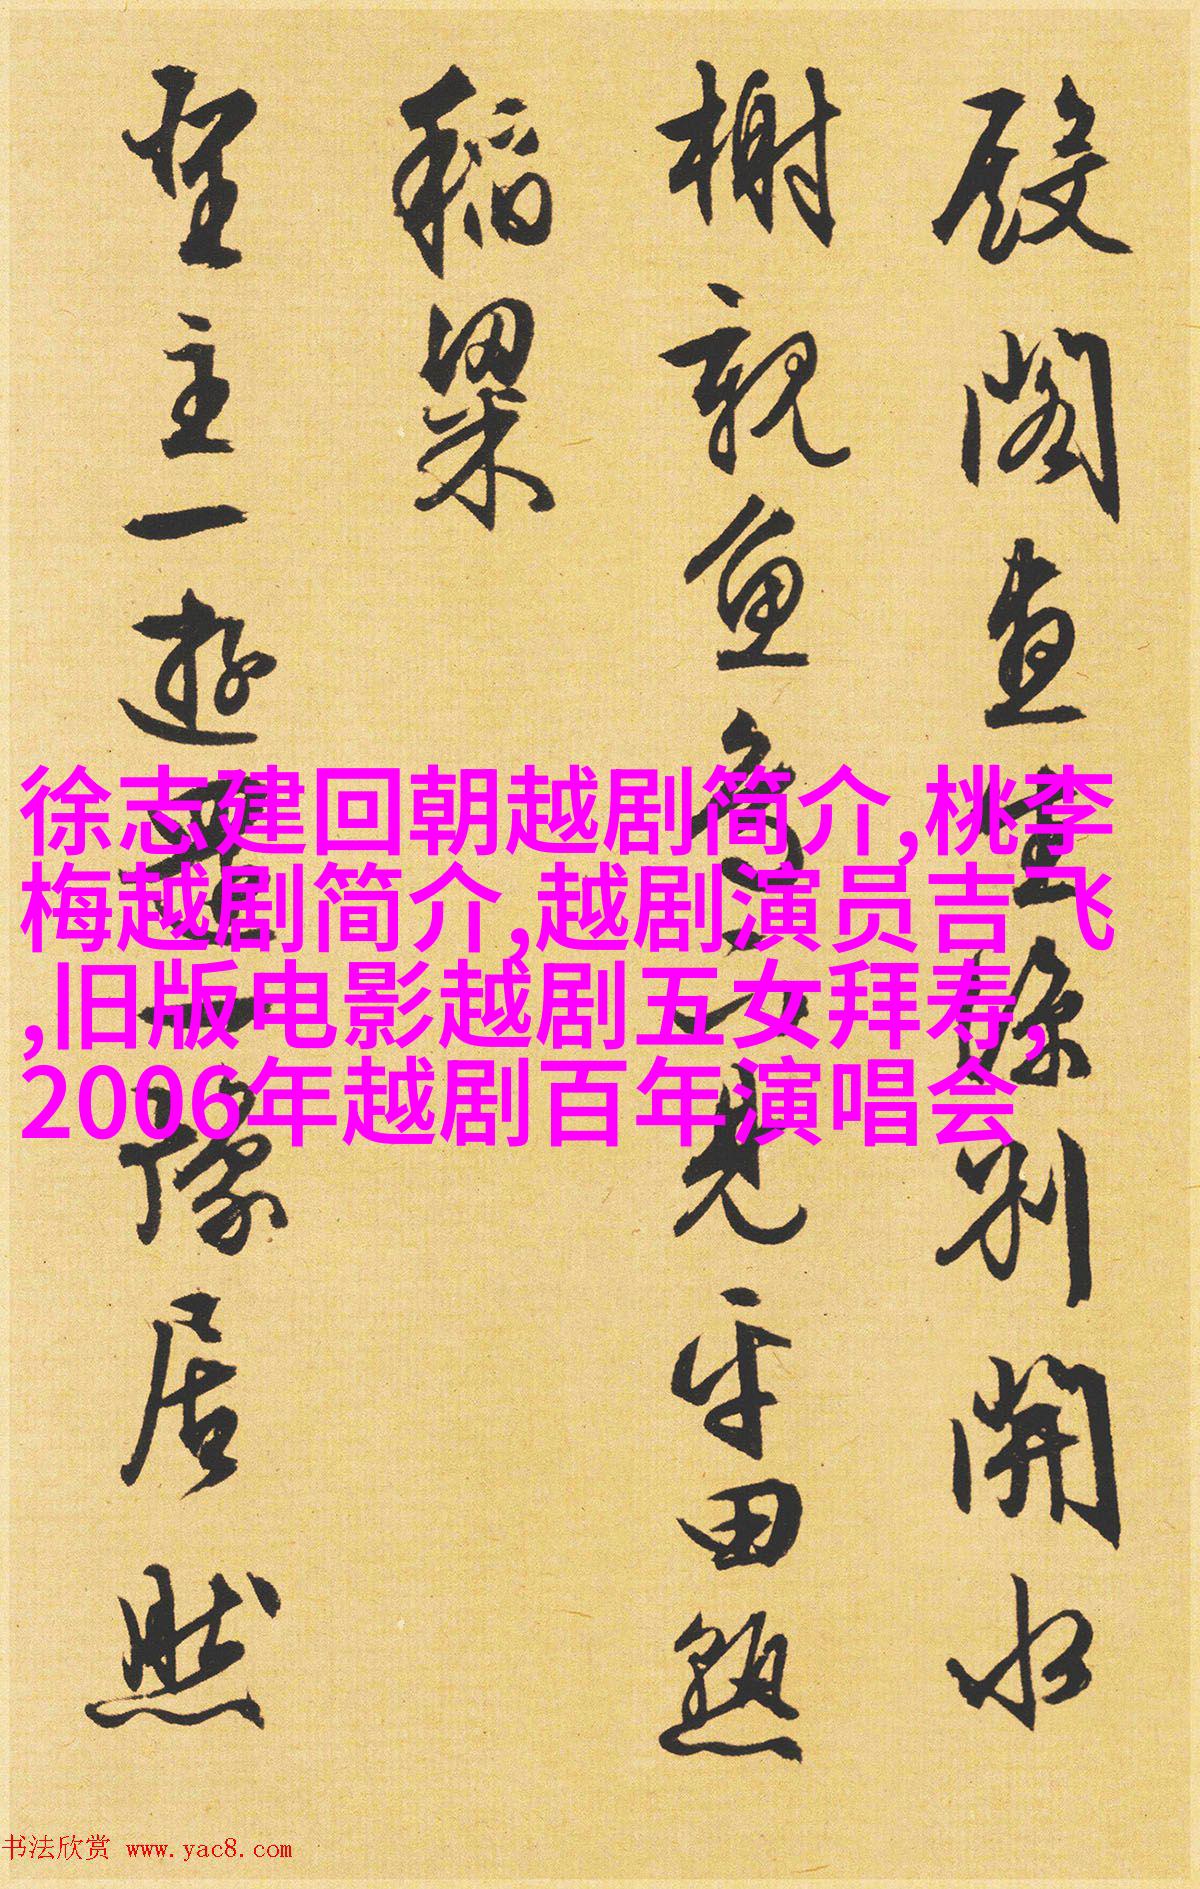 殿閣別開水
榭親魚鳥見平田熟
稻粱
聖主一遊一豫居然
徐志建回朝越剧简介,桃李
梅越剧简介,越剧演员吉飞
,旧版电影越剧五女拜寿,
2006年越剧百年演唱会
书法欣赏 www.yac8.com